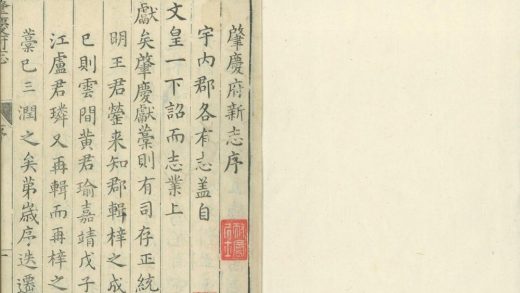 肇慶府新志序
宇内郡各有志盖自
文皇一下詔而志業上
獻矣肇慶獻藁則有司存正統
明王君鎣来知郡輯梓之成
已則雲間黄君瑜嘉靖戊子
江盧君璘又再輯而再梓之
藁已三潤之矣苐歳序迭遷
序